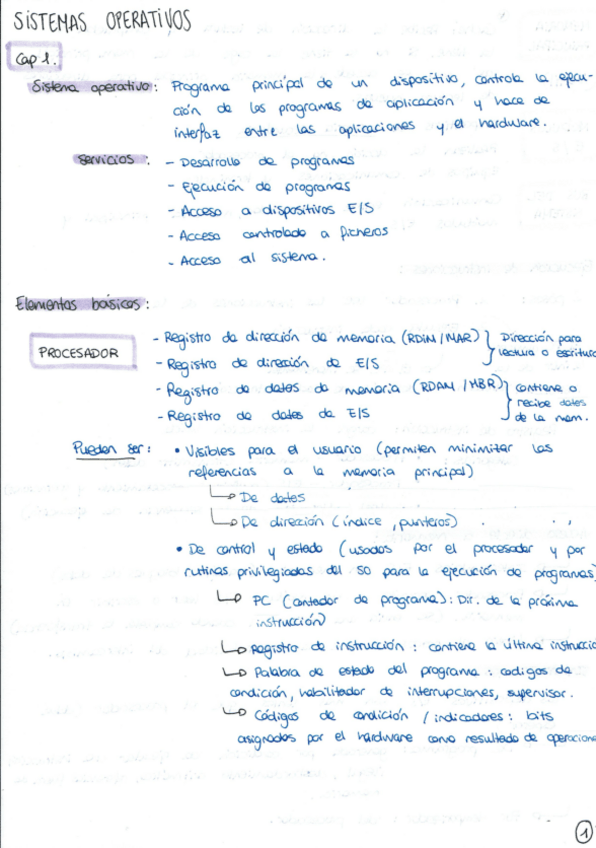 SISTEMAS OPERATIVOS
Cap 1.
Sistema operativo: Programa principal de un dispositivo, controla la ejecu-
ción de los programas de aplicación y hace de
interfaz entre las aplicaciones y el hardware.
Servicios: - Desarrollo de programas
- Ejecución de programas
- Acceso a dispositivos E/S
- Acceso controlado a ficheros
- Acceso al sistema.
Elementos básicos:
PROCESADOR
- Registro de dirección de memoria (RDIM/MAR) } Dirección para
- Registro de dirección de E/S } lectura o escritura
- Registro de datos de memoria (RDAM/MBR) } contiene o
recibe datos
- Registro de datos de E/S } de la mem.
Pueden ser: • Visibles para el usuario (permiten minimizar las
referencias a la memoria principal)
↳ De datos
↳ De dirección (índice, punteros)
• De control y estado (usados por el procesador y por
rutinas privilegiadas del SO para la ejecución de programas)
↳ PC (contador de programa): Dir. de la próxima
instrucción)
↳ Registro de instrucción: contiene la última instrucció
↳ Palabra de estado del programa: codigos de
condición, habilitador de interrupciones, supervisor.
↳ Códigos de condición / indicadores: bits
asignados por el hardware como resultado de operacione
1